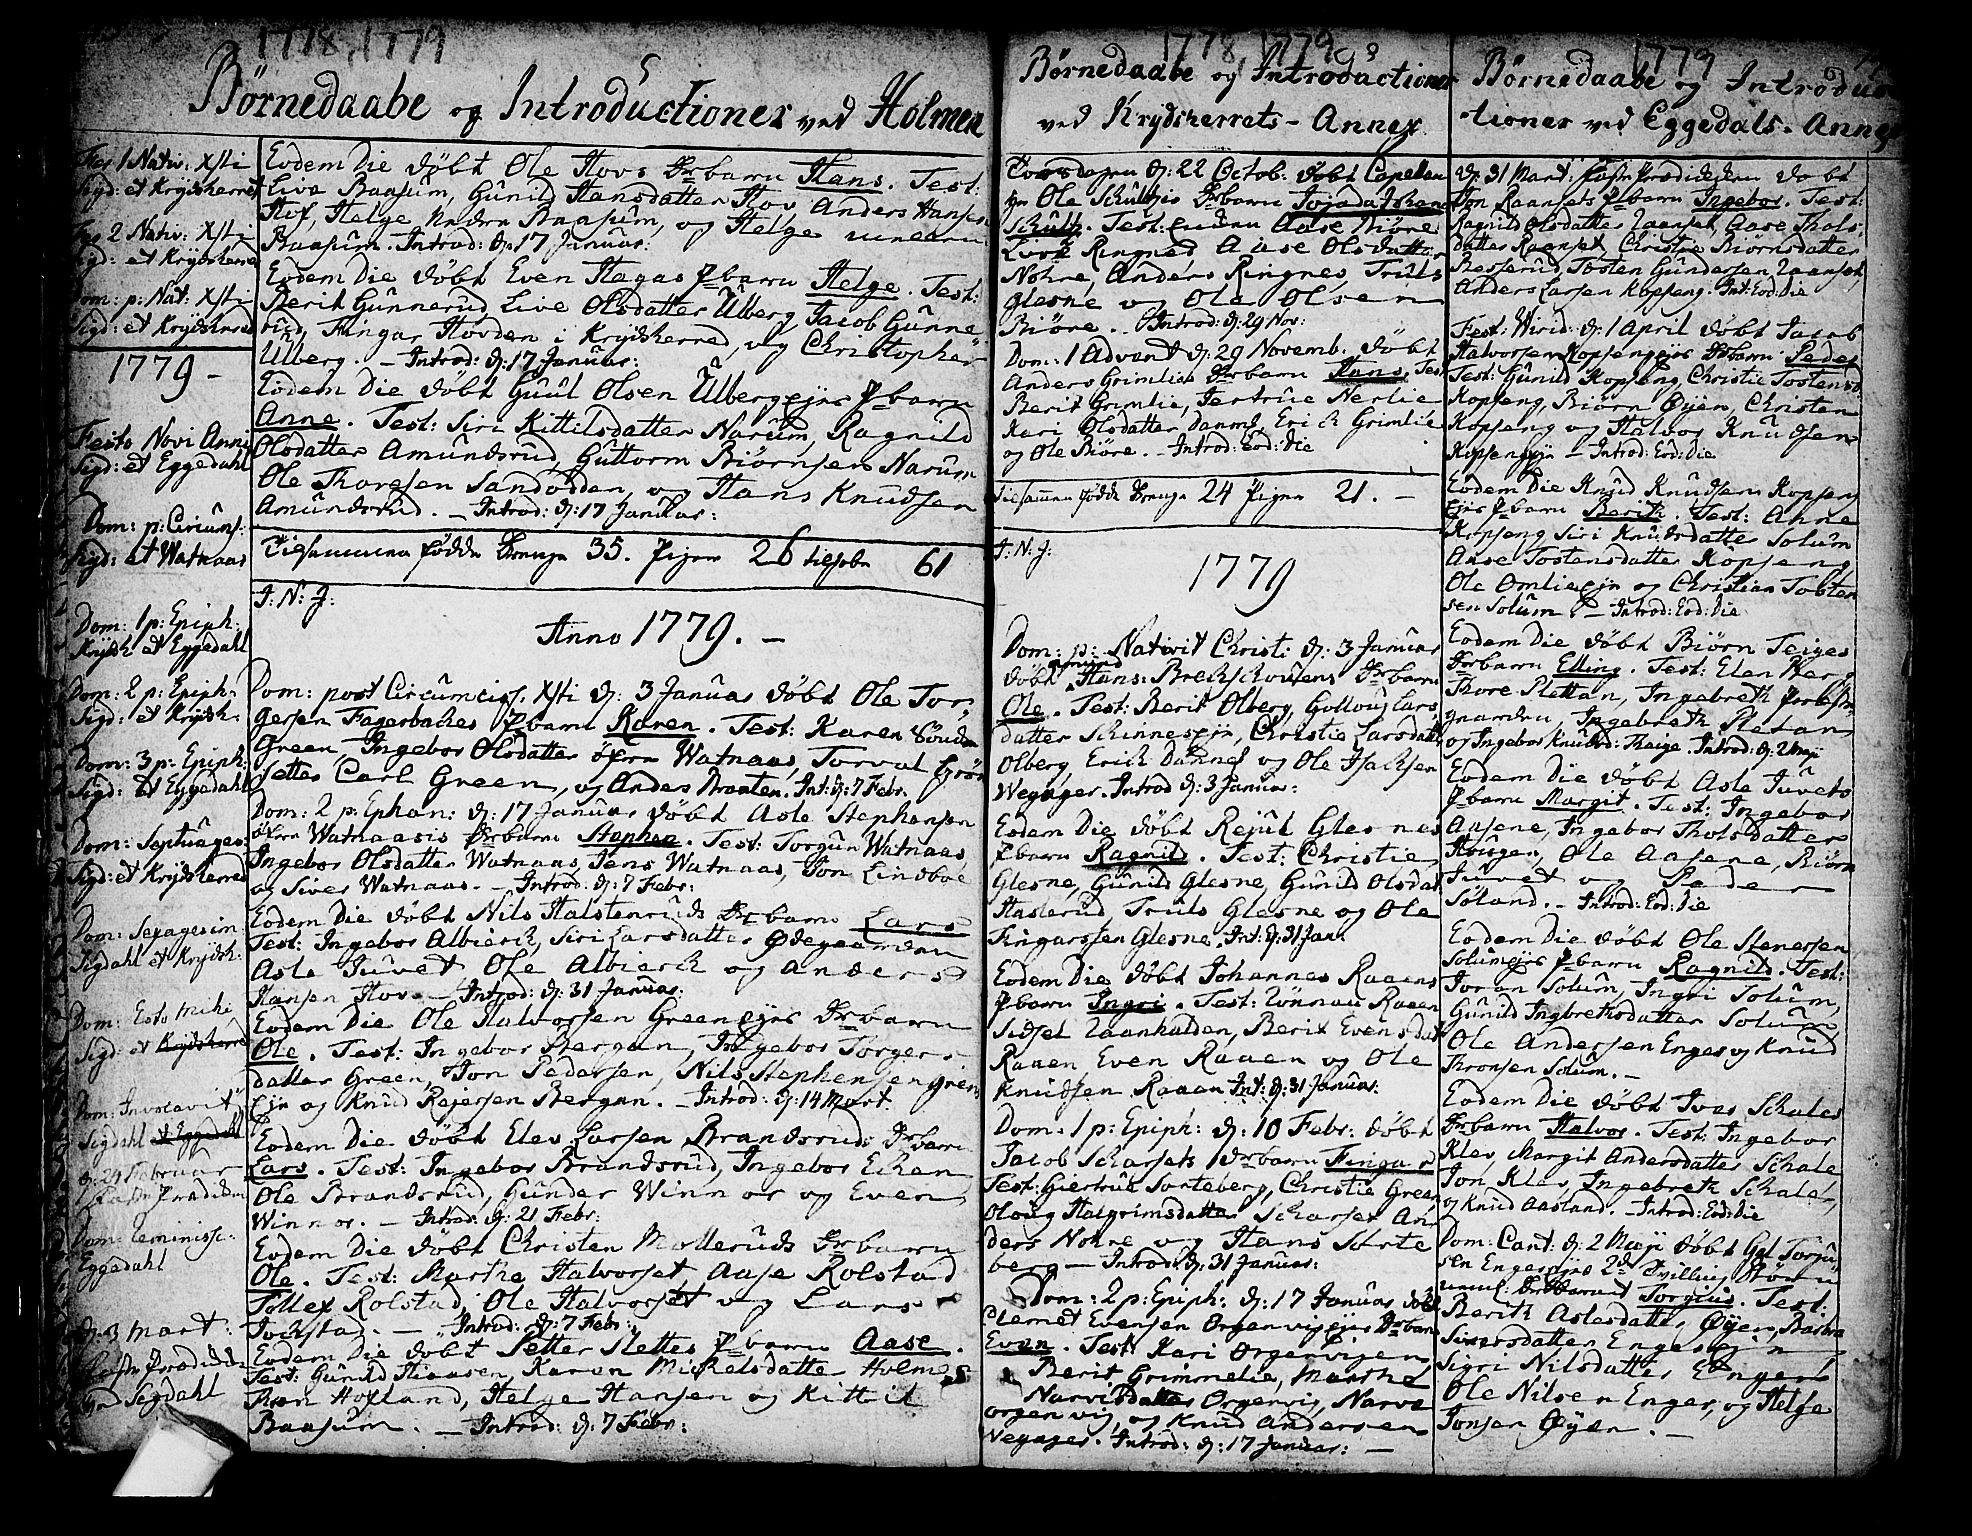 1778, 1779
Børnedaabe og Introductioner ved Holmen
Fer 1 Nativ: Xsti
Sigd: et Krydsherret
Fer 2 Nativ: Xsti
Sigd: et Krydsherre
Dom: p: Nat: Xsti
Sigd: et Krydsherred
1779 –
Festo Novi Anni
Sigd: et Eggedahl
Dom: p: Circums:
Sigd: et Watnaas
Dom: 1 p: Epiph:
Krydsh et Eggedahl
Dom: 2 p: Epiph:
Sigd: et Krydsh:
Dom: 3 p: Epiph:
Sigd: et Eggedahl
Dom: Septuages:
Sigd: et Krydsherred
Dom: Sexagesim:
Sigdahl et Krydsh:
Dom: Esto mihi
Sigd: et Krydsherre
Dom: Invocavit
Sigdahl et Eggedahl
d: 24 Februar
Dom: Reminisc:
Eggedahl
d: 3 Mart:
Sigdahl
Eodem Die døbt Ole Hovs Drbarn Hans. Test:
Live Baasum, Gunild Hansdatter Hov Anders Hansen
Hof, Helge Baasum, og Helge
Baasum. Introd: d: 17 Januar:
Eodem Die døbt Even Hagas Pbarn Helge. Test:
Berit Gunnerud, Live Olsdatter Ulberg Jacob Gunne
rud, Fingar Hovden i Krydsherred, og Christopher
Ulberg. – Introd: d: 17 Januar:
Eodem Die døbt Guul Olsen Ulbergejes Pbarn
Anne. Test: Siri Kittilsdatter Narum, Ragnild
Olsdatter Amundsrud, Guttorm Biørnsen Narum
Ole Thoresen Sandodden, og Hans Knudsen
Amundsrud. – Introd: d: 17 Januar:
Tilsammen fødde Drenge 35. Piger 26 tilsobn 61
I: N: J:
Anno 1779. –
Dom: post Circumcis. Xsti d: 3 Januar døbt Ole Tor,
gersen Fagerbaches Pbarn Karen. Test: Karen
Green, Ingebor Olsdatter øfvre Watnaas, Torval Grøs
setter, Carl Green, og Andes Braaten. Int: d: 7 Febr.
Dom: 2 p: Ephan: d: 17 Januar døbt Asle Stephensen
øfvre Watnaasis Drbarn Stephen. Test: Torgun Watnaas,
Ingebor Olsdatter Watnaas, Jens Watnaas, Jon Lindboe
og Siver Watnaas. – Introd: d: 7 Febr:
Eodem Die døbt Nils Halstenruds Drbarn Lars
Test: Ingebor Albierck, Siri Larsdatter Ødegaarden
Asle Juvet, Ole Albierck og Anders
Hansen Hov. – Introd: d: 31 Januar:
Eodem Die Ole Halvorsen Greenejes Drbarn
Ole. Test: Ingebor Bergan, Ingebor Torgers
datter Green, Jon Pedersen, Nils Stephensen Green
Ejn og Knud Rejersen Bergan. – Introd: d: 14 Mart:
Eodem Die døbt Elev Larsen Brandsruds Drbarn
Lars. Test: Ingebor Brandsrud, Ingebor Ekan
Ole Brandsrud, Gunder Winnor og Even
Winnor. – Introd: d: 21 Febr:
Eodem Die døbt Christen Molleruds Drbarn
Ole. Test: Marthe Halvorset, Aase Rolstad
Tollef Rolstad, Ole Halvorset og Lars
Jockstad. – Introd: d: 7 Febr:
Eodem Die døbt Petter Slettes Pbarn Aase.
Test: Gunild Karen Mickelsdatter Holmes
Hofland, Helge Hansen og Kittil
Baasum. – Introd: d: 7 Febr:
1778, 1779
Børnedaabe og Introductioner
ved Krydsherrets – Annex.
Torsdagen d: 22 Octob: døbt Capellan
Hr Ole Schultzis Drbarn
Schultz. Test: Aase Biøre
Live Ringned Aase Olsdatter
Nohre, Anders Ringnes, Truls
Glesne og Ole Olsen
Biøre. – Introd: d: 29 Nov:
Dom: 1 Advent d: 29 Novemb. døbt
Anders Grimlies Drbarn Hans. Test
Berit Grimlie, Jertrue Nerlie
Kari Olsdatter Erick Grimlie
og Ole Biøre. – Introd: Eod: Die
Tilsammen fødde Drenge 24 Piger 21. –
I: N: J:
1779
Dom: p: Nativit Christi d: 3 Januar
døbt Hans: Breckschovens Drbarn
Ole. Test: Berit Olberg, Golloug Lars
datter Skinnesejn, Christie Larsdatt
Olberg Erick og Ole Isachsen
Wegager. Introd d: 3 Januar:
Eodem Die døbt Rejul Glesnes
Pbarn Ragnild. Test: Christie
Glesne, Gunild Glesne, Gunild Olsdat
Haslerud, Truls Glesne og Ole
Fingarssen Glesne. Int: d: 31 Jan:
Eodem Die døbt Johannes Raaens
Pbarn Ingri. Test: Rønnau Raaen
Sidsel Laanhalden, Berit Evensdat
Raaen, Even Raaen og Ole
Knudsen Raaen Int: d: 31 Januar:
Dom: 1 p: Epiph: d: 10 Febr: døbt
Jacob Scharsets Drbarn Fingar
Test: Giertrud Sorteberg, Christie Green
Oloug Halgrimsdatter Scharset An
ders Nohre og Hans Sorte
berg – Introd: d: 31 Januar:
Dom: 2 p: Epiph: d: 17 Januar døbt
Clemet Evensen Orgenvigejes Drbarn
Even. Test: Kari Orgenvigen
Berit Grimmelie, Marthe
Narvisdatter Orgenvig, Narve
Orgenvig, og Knud Andersen
Wegager. Introd: d: 17 Januar: –
1779
Børnedaabe og Introduc
tioner ved Eggedals – Annex
d: 31 Mart: døbt
Jon Raansets Pbarn Ingebor. Test:
Ragnild Olsdatter Raanset, Aase Thols
datter Raanset, Christie Biørnsdatter
Besserud, Tosten Gundersen Raanset
Anders Larsen Kopseng. Int: Eod: Die
Fest: Virid: d: 1 April døbt Jacob
Halvorsen Kopsengejes Drbarn Peder
Test: Gunild Kopseng, Christie Tostensd
Kopseng, Biørn Øyen, Christen
Kopseng og Halvor Knudsen
Kopsengejn – Introd: Eod: Die
Eodem Die Knud Knudsen Kopseng
Ejes Pbarn Berith. Test: Anne
Kopseng Siri Knutsdatter Solum
Aase Tostensdatter Kopseng
Ole Omlieejn og Christian Tosten
sen Solum – Introd: Eod: Die
Eodem Die døbt Biørn Teiges
Drbarn Elling. Test: Elen Berg
Thore Plettan, Ingebreth
Ingebreth Pletan
og Ingebor Teige. Introd: d: 2 Maji
Eodem Die døbt Asle Juvets
Pbarn Margit. Test: Ingebor
Aasene, Ingebor Tholsdatter
Haugen, Ole Aasene, Biørn
Juvet og Peder
Søland. – Introd: Eod: Die
Eodem Die døbt Ole Stenersen
Solumejes Pbarn Ragnild. Test:
Joran Solum, Ingri Solum,
Gunild Ingbrethsdatter Solum
Ole Andersen Enger og Knud
Thronsen Solum. –
Eodem Die døbt Iver Schales
Drbarn Halvor. Test: Ingebor
Klev, Margit Andersdatter Schale
Jon Klev, Ingebreth Schale,
og Knud Aasland. – Introd: Eod: Die
Dom: Cant: d: 2 Maji døbt Gul Torju
sen Engersejes 2de Tvilling Børn
Drbarnet Torgius. Test:
Berith Aslesdatter Øyen,
Siversdatter Engersejn
Sigri Nilsdatter Enger
Ole Nilsen Enger, og Helge
Jonsen Øyen. –